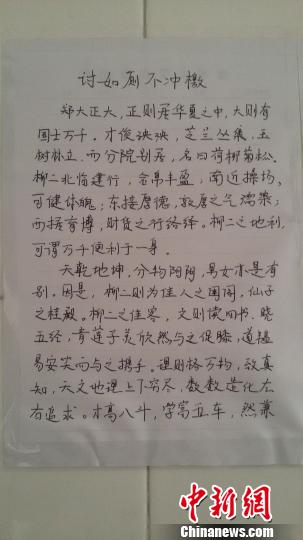 讨如厕不冲檄
郑大正大,正则居华夏之中,大则有
国士万千。才俊泱泱,芝兰丛集,玉
树林立,而分院别居,名曰荷柳菊松。
柳二北临建行,金帛丰盈;南近操场,
可健体魄;东接厚德,敦厚之气濡染;
西括育博,财货之行络绎。柳二之地利,
可谓万千便利于一身。
天乾地坤,分为阴阳,男女亦是有
别。因是,柳二则为佳人之闺阁,仙子
之桂殿。柳二之佳客,文则读四书,晓
五经,青莲子美欣然与之促膝,道韫
易安笑而与之携手。理则格万物,致真
知,天文地理上下穷尽,数数造化左
右追求。才高八斗,学富五车,然兼
中新网
www.chinanews.com